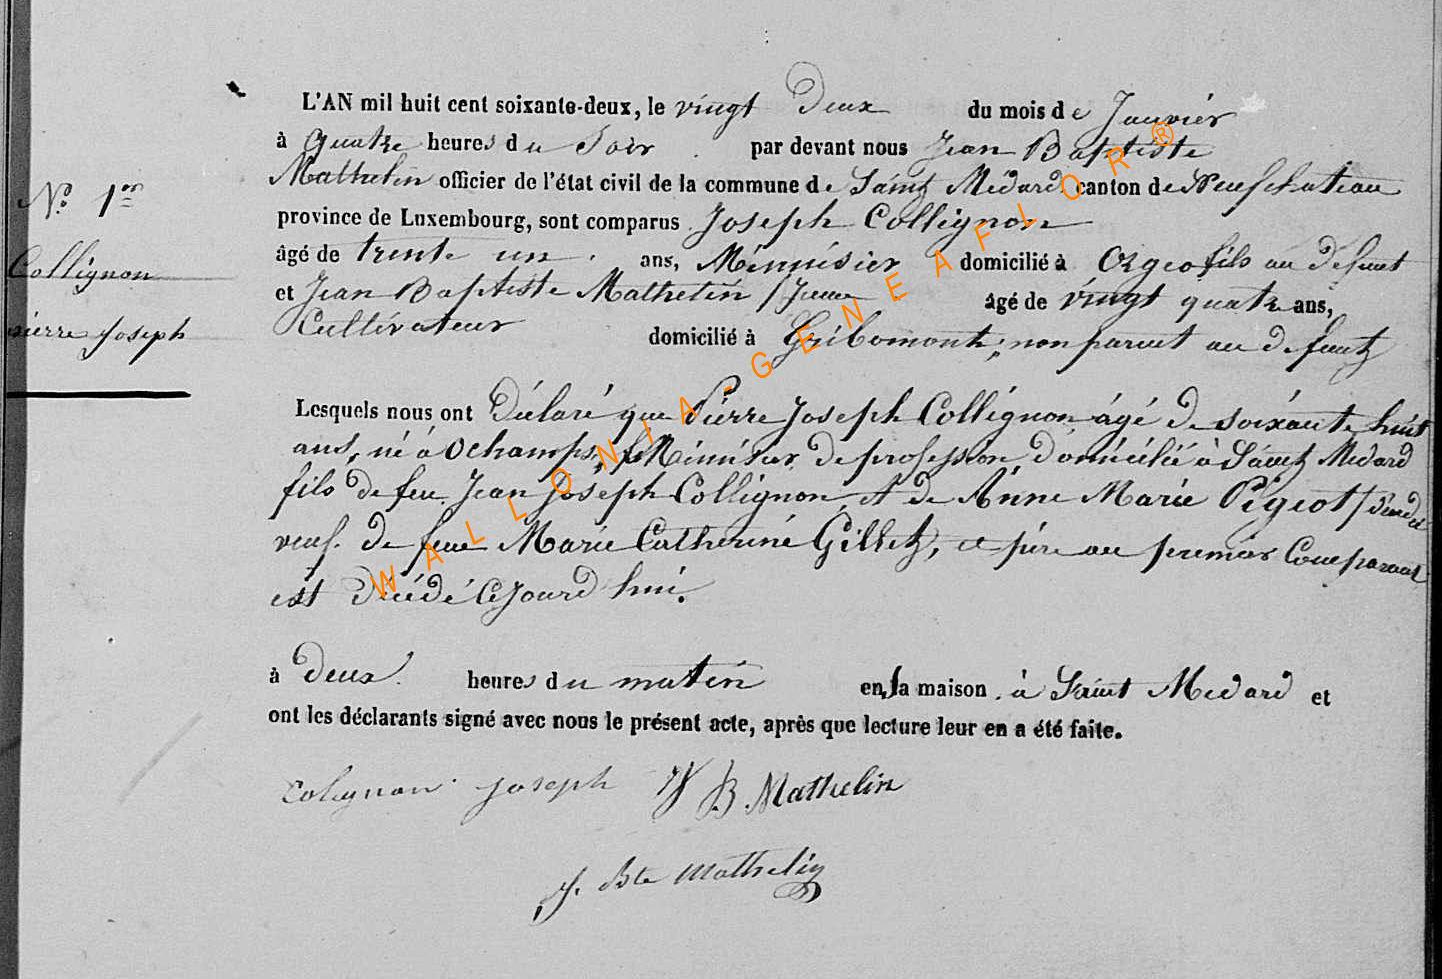 L'AN mil huit cent soixante-deux, le vingt Deux du mois de Janvier
à quatre heures du Soir par devant nous Jean Baptiste
Mathelin officier de l'état civil de la commune de Saint Médard canton de Neufchateau
province de Luxembourg, sont comparus Joseph Collignon
âgé de trente un ans, Ménuisier domicilié à Orgeo fils au défunt
et Jean Baptiste Mathelin Jeune âgé de vingt quatre ans,
Cultivateur domicilié à Gribomont, non parent au defunt
N° 1er
Collignon
pierre Joseph
Lesquels nous ont Déclaré que Pierre Joseph Collignon âgé de soixante huit
ans, né à Ochamps, Ménisier de profession domicilié à Saint Médard
fils de feu Jean Joseph Collignon et de Anne Marie Pigeot
veuf de feue Marie Catherine Gillet, et père au premier Comparant
est Décédé Cejourd'hui.
à Deux heures du matin en la maison à Saint Medard et
ont les déclarants signé avec nous le présent acte, après que lecture leur en a été faite.
Colignon Joseph JB Mathelin
J. Bte Mathelin
WALLONIA-GENEAFLOR®